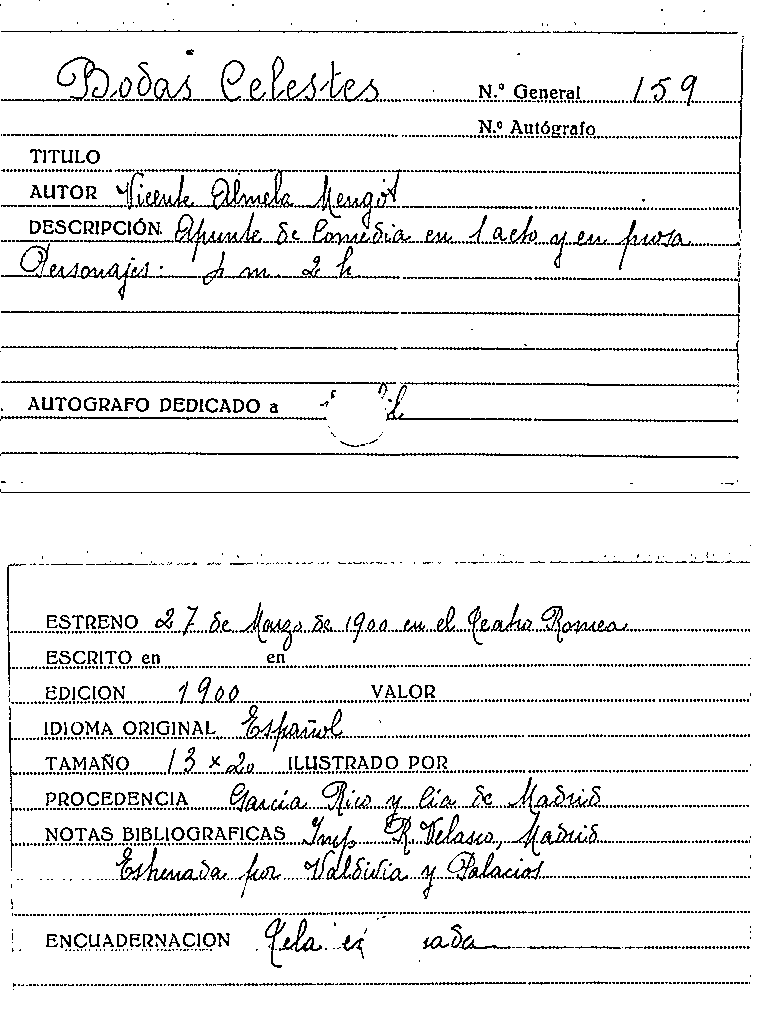 Bodas Celestes N.º General 159
N.º Autógrafo
TITULO
AUTOR Vicente Almela Mengot
DESCRIPCIÓN Apunte de Comedia en 1 acto y en prosa
Personajes: m. 2 h
AUTOGRAFO DEDICADO a
ESTRENO 27 de Marzo de 1900 en el Teatro Romea
ESCRITO en en
EDICION 1900 VALOR
IDIOMA ORIGINAL Español
TAMAÑO 13 x 20 ILUSTRADO POR
PROCEDENCIA García Rico y Cía de Madrid
NOTAS BIBLIOGRAFICAS Imp R. Velasco, Madrid
Estrenada por Valdivia y Palacios
ENCUADERNACION Tela